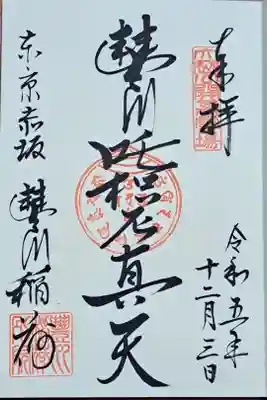 奉拝
令和五年
十二月三日
豊川吒枳尼真天
東京赤坂
豊川稲荷